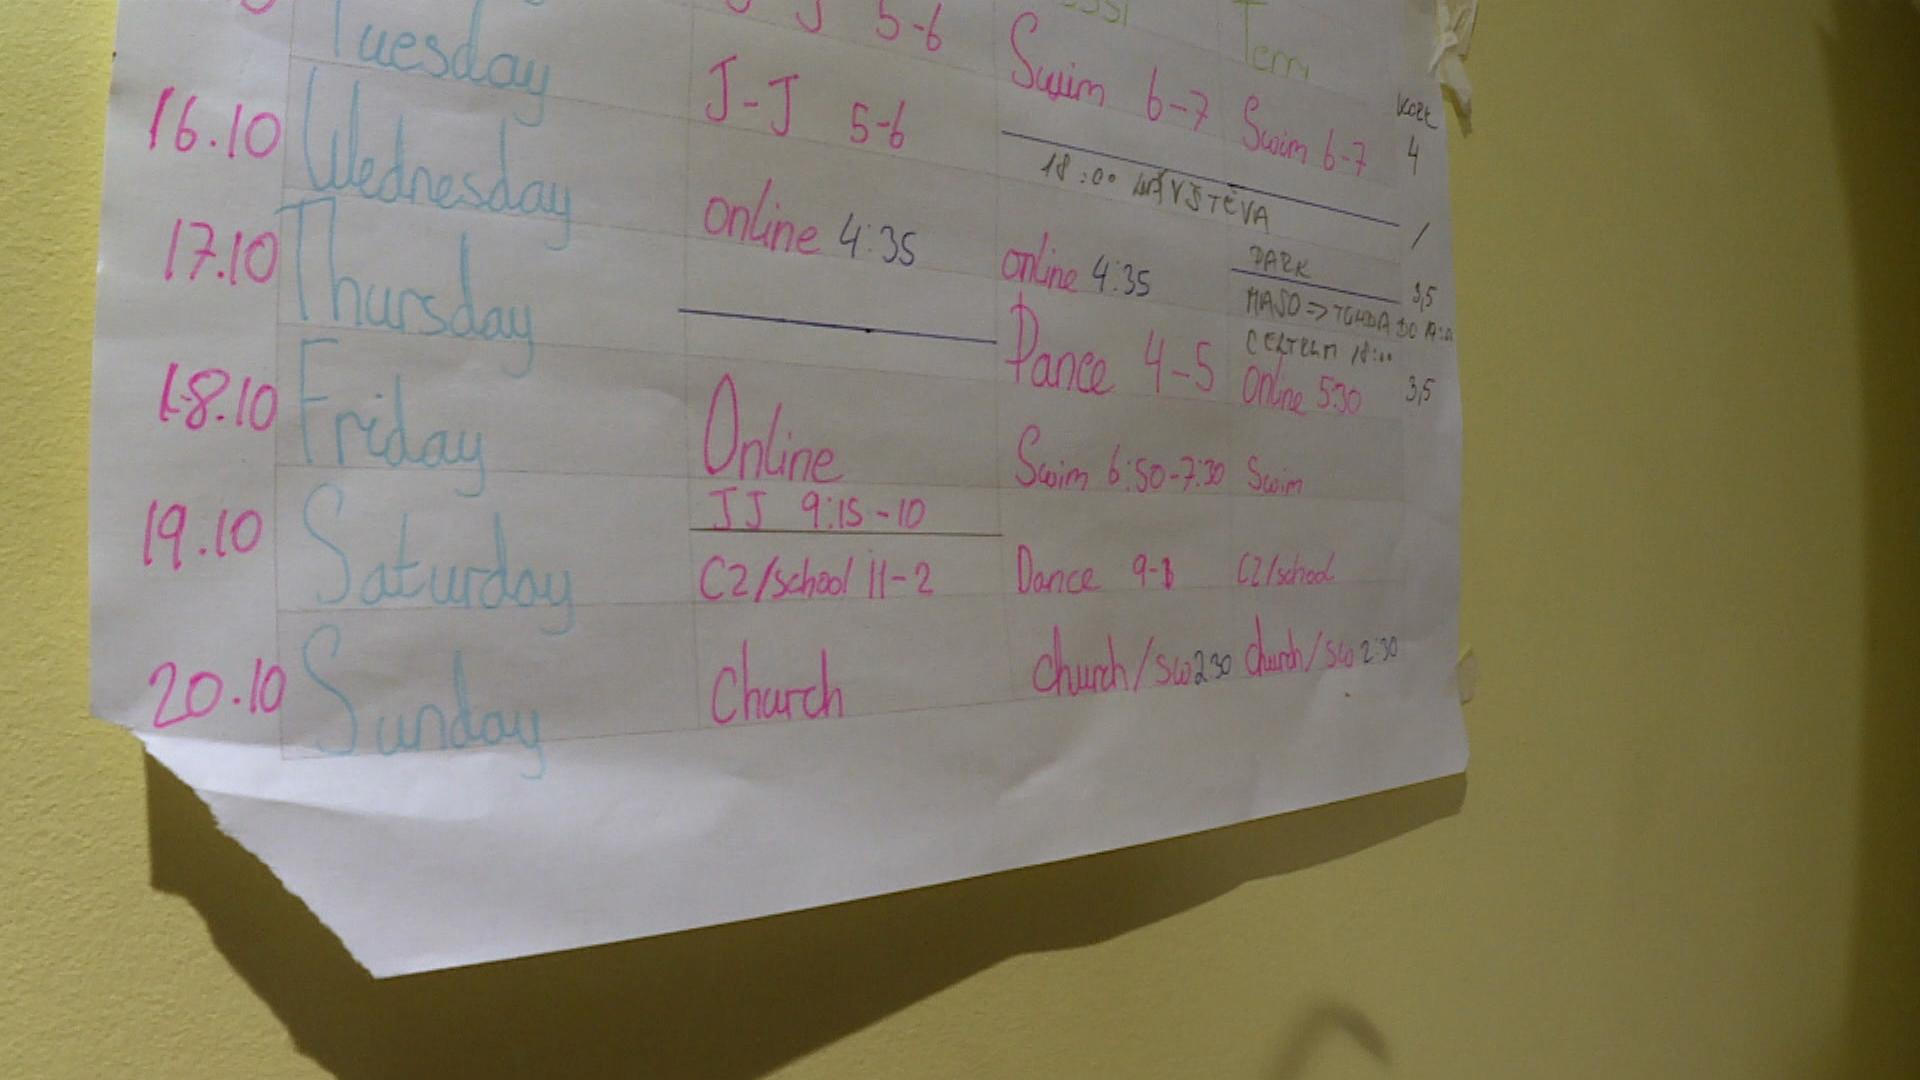 5-6
Tuesday J-J 5-6 Swim 6-7 Swim 6-7 4
16.10 Wednesday online 4:35 18:00 NÁVŠTĚVA /
17.10 Thursday online 4:35 PARK 3,5
MASO => DO
18:00
18.10 Friday Online Dance 4-5 Online 5:30 3,5
JJ 9:15-10 Swim 6:50-7:30 Swim
19.10 Saturday C2/school 11-2 Dance 9-1 C2/school
20.10 Sunday Church church/sw 2:30 church/sw 2:30